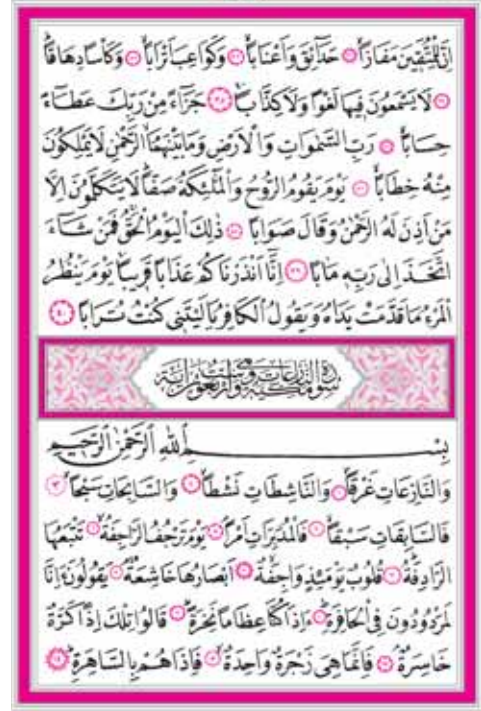 اِنَّ لِلْمُتَّقٖينَ مَفَازًاۙ ﴿٣١﴾ حَدَٓائِقَ وَاَعْنَابًاۙ ﴿٣٢﴾ وَكَوَاعِبَ اَتْرَابًاۙ ﴿٣٣﴾ وَكَأْسًا دِهَاقًاۜ
﴿٣٤﴾ لَا يَسْمَعُونَ فٖيهَا لَغْوًا وَلَا كِذَّابًاۚ ﴿٣٥﴾ جَزَٓاءً مِنْ رَبِّكَ عَطَٓاءً
حِسَابًاۙ ﴿٣٦﴾ رَبِّ السَّمٰوَاتِ وَالْاَرْضِ وَمَا بَيْنَهُمَا الرَّحْمٰنِ لَا يَمْلِكُونَ
مِنْهُ خِطَابًاۚ ﴿٣٧﴾ يَوْمَ يَقُومُ الرُّوحُ وَالْمَلٰٓئِكَةُ صَفًّاۜ لَا يَتَكَلَّمُونَ اِلَّا
مَنْ اَذِنَ لَهُ الرَّحْمٰنُ وَقَالَ صَوَابًا ﴿٣٨﴾ ذٰلِكَ الْيَوْمُ الْحَقُّۚ فَمَنْ شَٓاءَ
اتَّخَذَ اِلٰى رَبِّهٖ مَاٰبًا ﴿٣٩﴾ اِنَّٓا اَنْذَرْنَاكُمْ عَذَابًا قَرٖيبًاۚ يَوْمَ يَنْظُرُ
الْمَرْءُ مَا قَدَّمَتْ يَدَاهُ وَيَقُولُ الْكَافِرُ يَا لَيْتَنٖي كُنْتُ تُرَابًا ﴿٤٠﴾
سورة النازعات مكية وهي ست واربعون اية
بِسْمِ اللّٰهِ الرَّحْمٰنِ الرَّحٖيمِ
وَالنَّازِعَاتِ غَرْقًاۙ ﴿١﴾ وَالنَّاشِطَاتِ نَشْطًاۙ ﴿٢﴾ وَالسَّابِحَاتِ سَبْحًاۙ ﴿٣﴾
فَالسَّابِقَاتِ سَبْقًاۙ ﴿٤﴾ فَالْمُدَبِّرَاتِ اَمْرًاۢ ﴿٥﴾ يَوْمَ تَرْجُفُ الرَّاجِفَةُۙ ﴿٦﴾ تَتْبَعُهَا
الرَّادِفَةُۜ ﴿٧﴾ قُلُوبٌ يَوْمَئِذٍ وَاجِفَةٌۙ ﴿٨﴾ اَبْصَارُهَا خَاشِعَةٌۢ ﴿٩﴾ يَقُولُونَ ءَاِنَّا
لَمَرْدُودُونَ فِي الْحَافِرَةِۜ ﴿١٠﴾ ءَاِذَا كُنَّا عِظَامًا نَخِرَةًۜ ﴿١١﴾ قَالُوا تِلْكَ اِذًا كَرَّةٌ
خَاسِرَةٌۢ ﴿١٢﴾ فَاِنَّمَا هِيَ زَجْرَةٌ وَاحِدَةٌۙ ﴿١٣﴾ فَاِذَا هُمْ بِالسَّاهِرَةِۜ ﴿١٤﴾